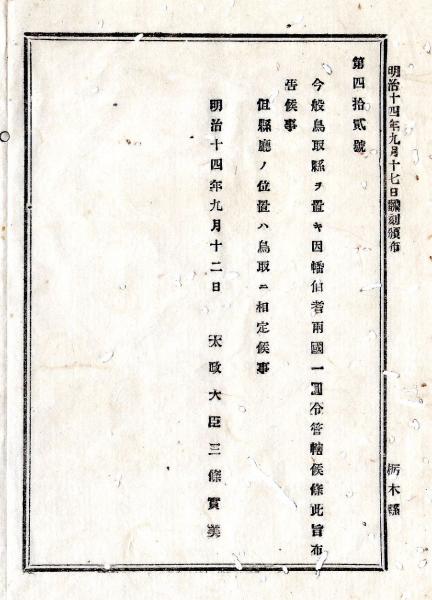 明治十四年九月十七日飜刻頒布
栃木縣
第四拾貳號
今般鳥取縣ヲ置キ因幡伯耆兩國一圓令管轄候條此旨布
告候事
但縣廳ノ位置ハ鳥取ニ相定候事
明治十四年九月十二日
太政大臣三條實美